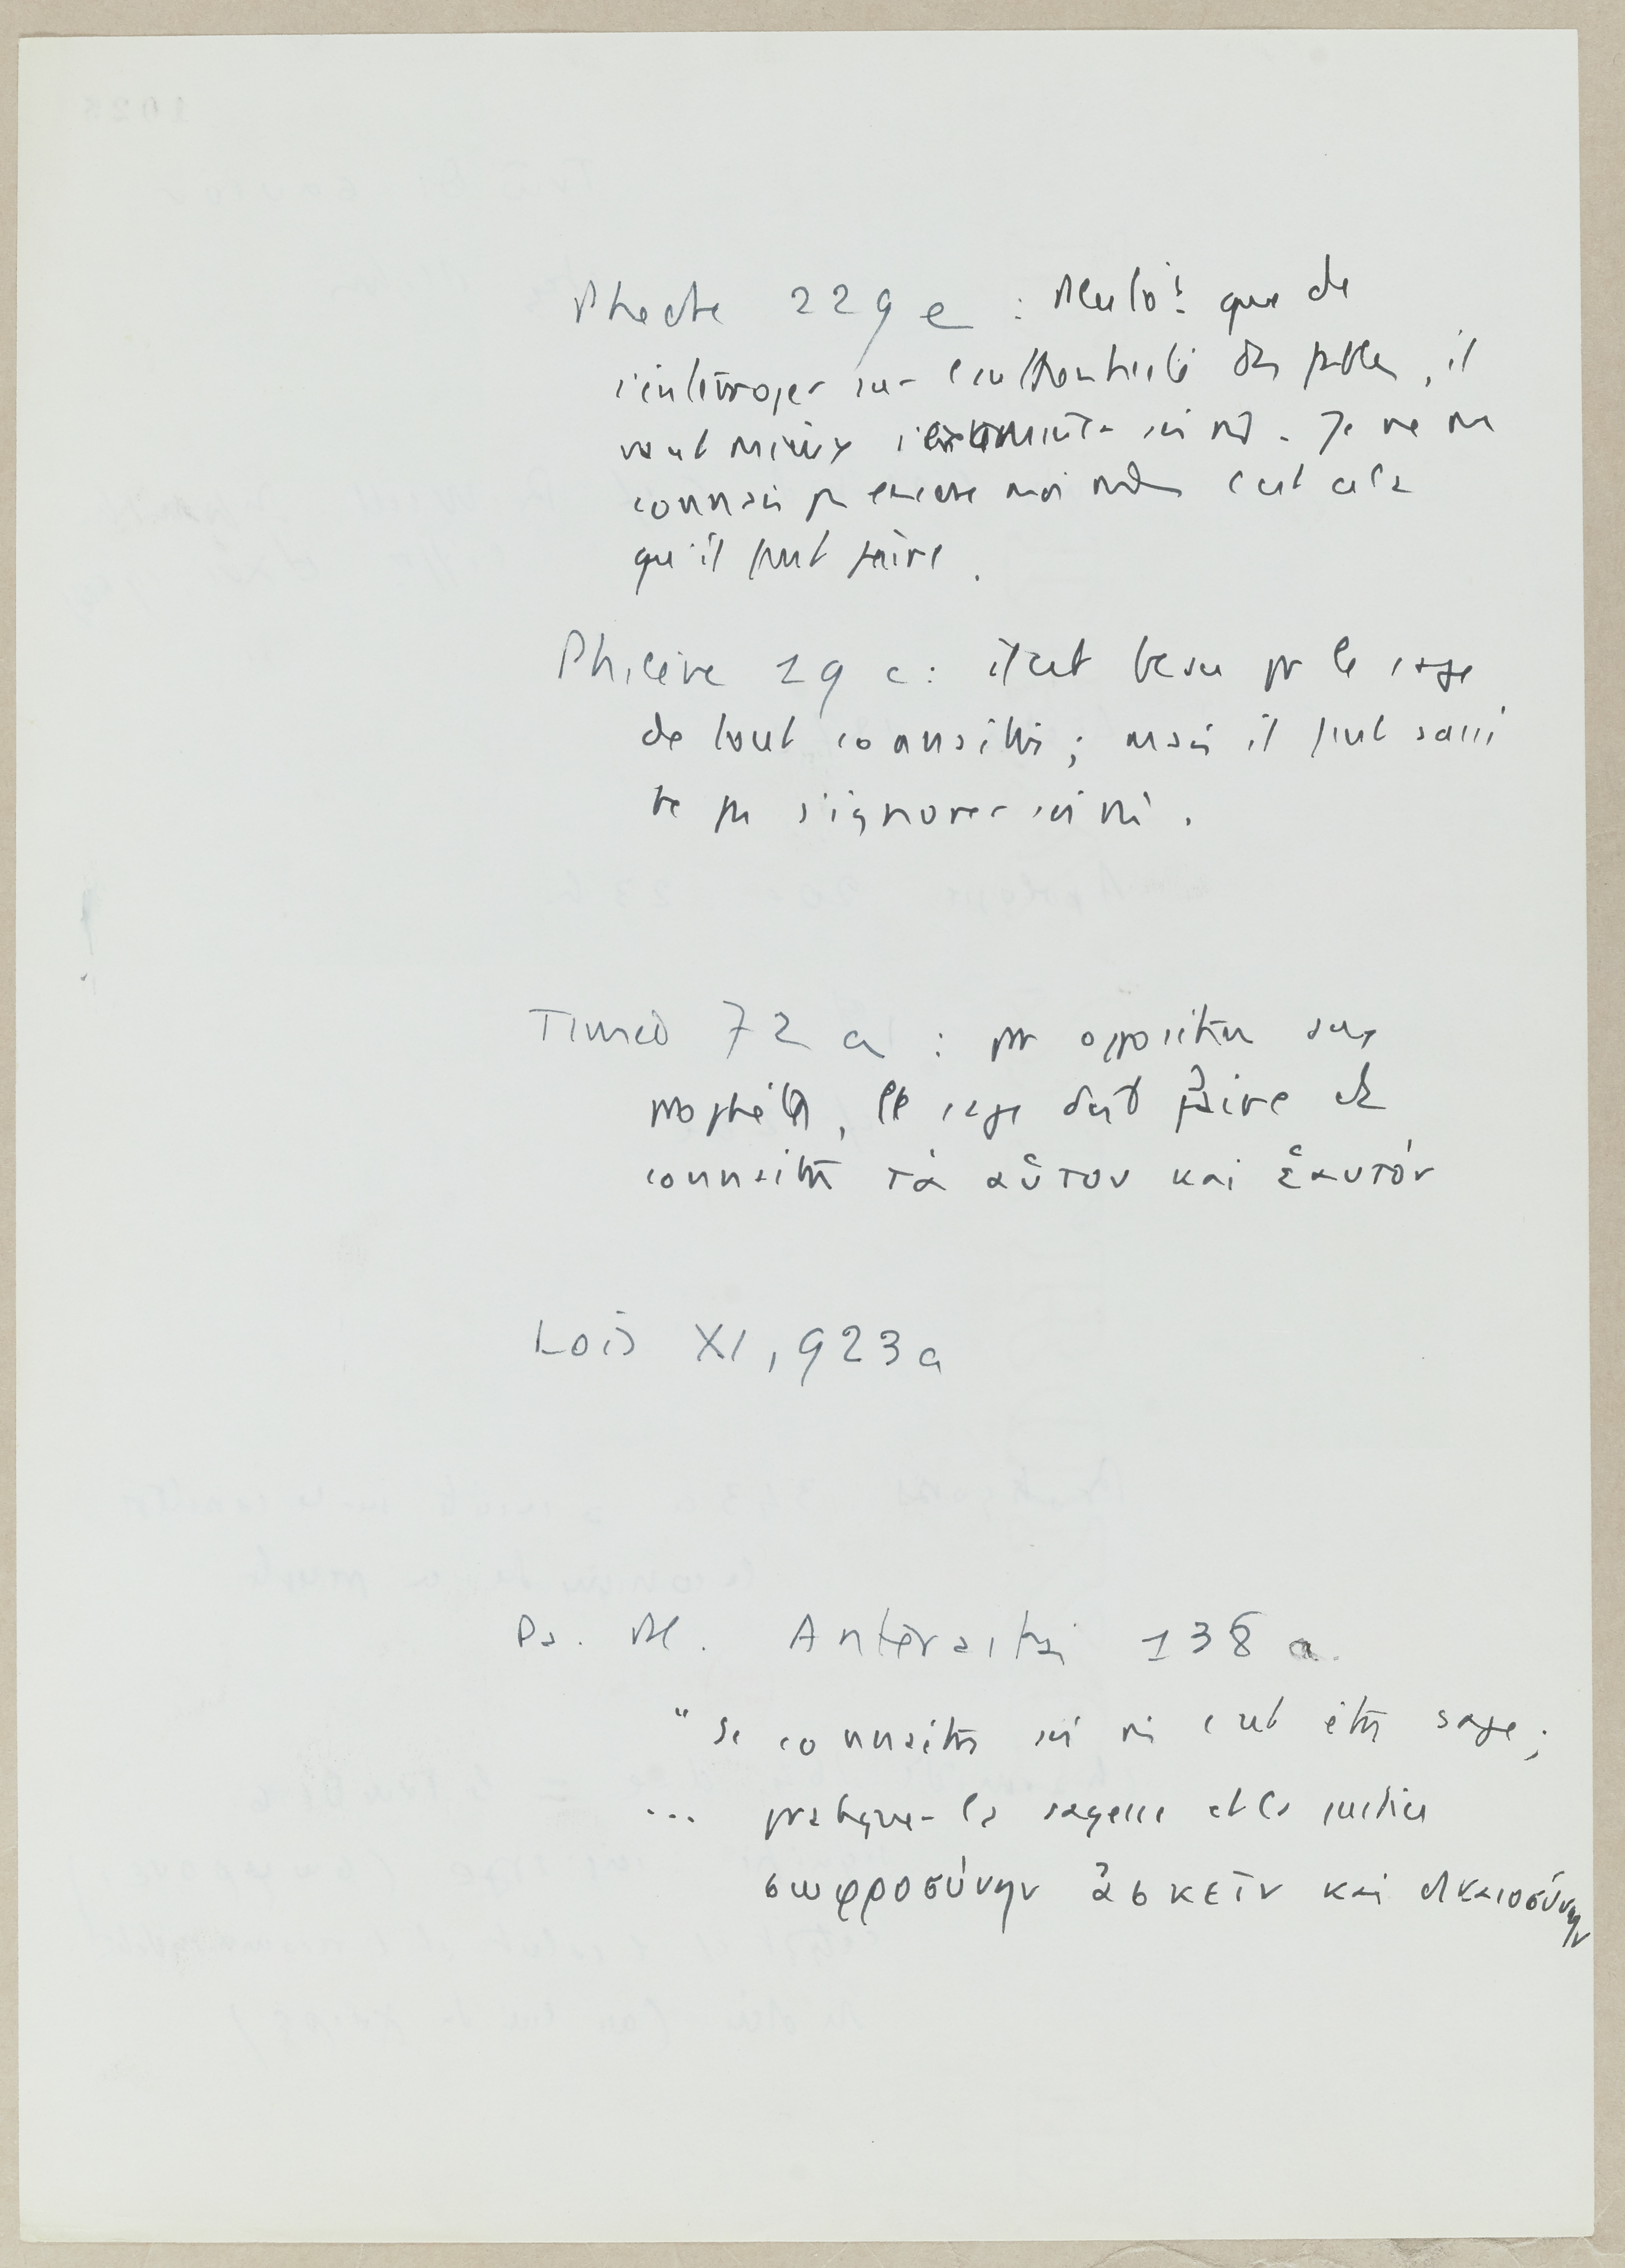 Phèdre 229 e : Plutôt que de
s'interroger sur l'authenticité des fables, il
vaut mieux s'examiner soi m. Je ne me
connais pas encore moi même c'est cela
qu'il faut faire.
Philèbe 19 c : il est beau pr le sage
de tout connaître ; mais il faut aussi
ne pas s'ignorer soi m.
Timée 72 a : par opposition aux
prophètes, le sage doit faire et
connaître τὰ αὑτου και ἑαυτόν
Lois XI, 923a
Ps. Pl. Anterastai 138 a.
"Se connaître soi m c'est être sage ;
... pratiquer la sagesse et la justice
σωφροσύνην ἀσκεῖν και δικαιοσύνην